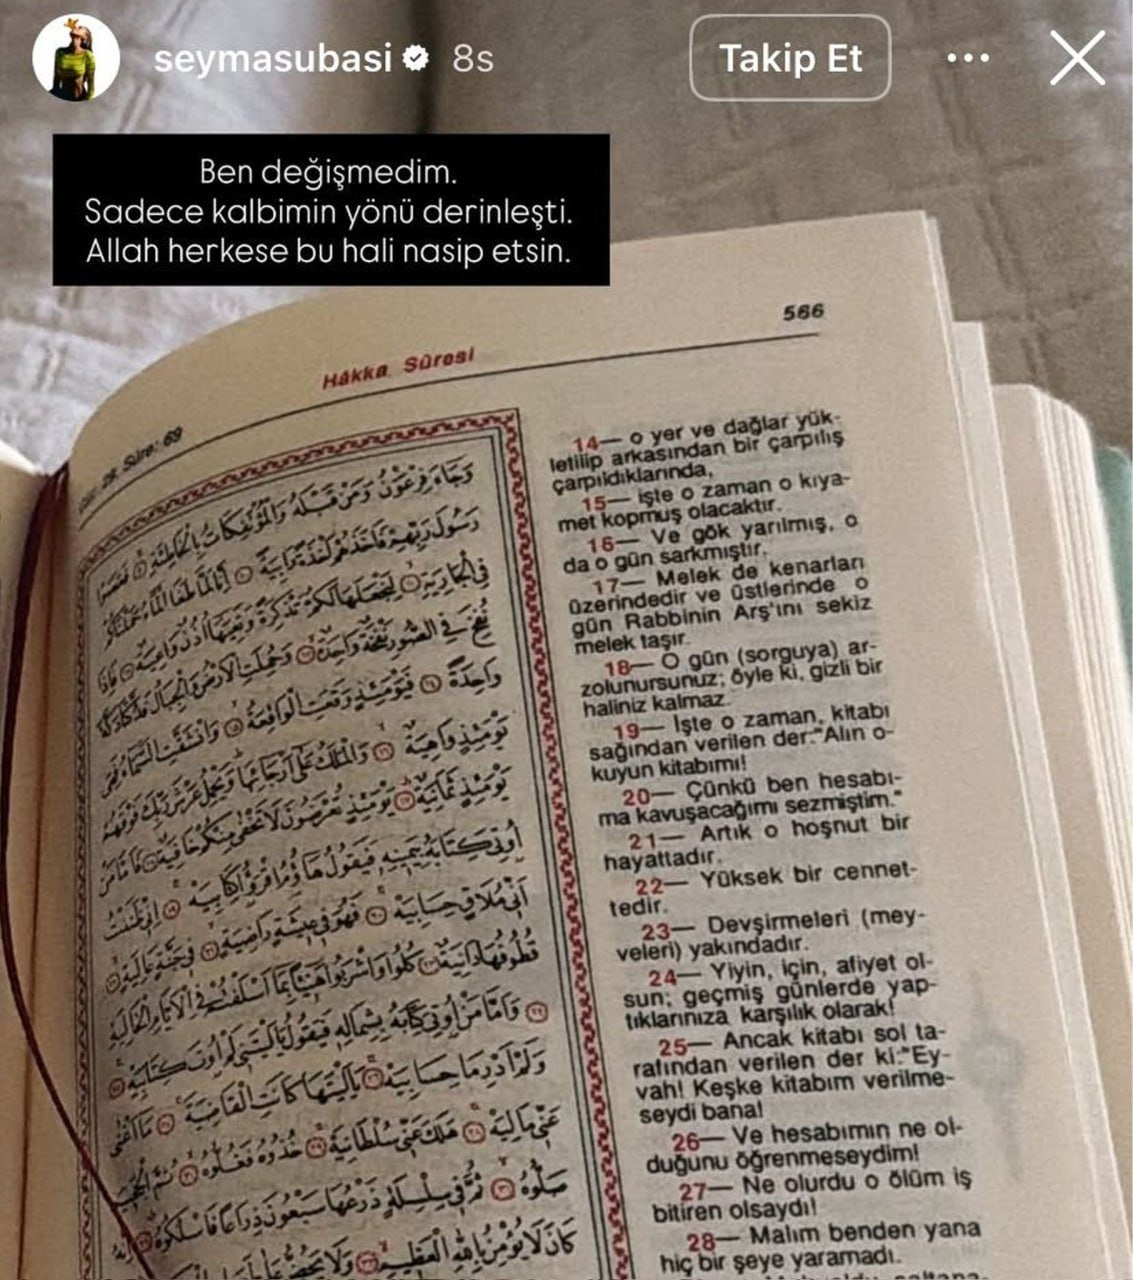 seymasubasi 8s
Takip Et
Ben değişmedim.
Sadece kalbimin yönü derinleşti.
Allah herkese bu hali nasip etsin.
566
Hâkka Sûresi
Sûre: 69
وَجَاءَ فِرْعَوْنُ وَمَنْ قَبْلَهُ وَالْمُؤْتَفِكَاتُ بِالْخَاطِئَةِ فَعَصَوْا
رَسُولَ رَبِّهِمْ فَأَخَذَهُمْ أَخْذَةً رَابِيَةً إِنَّا لَمَّا طَغَا الْمَاءُ حَمَلْنَاكُمْ
فِي الْجَارِيَةِ لِنَجْعَلَهَا لَكُمْ تَذْكِرَةً وَتَعِيَهَا أُذُنٌ وَاعِيَةٌ فَإِذَا
نُفِخَ فِي الصُّورِ نَفْخَةٌ وَاحِدَةٌ وَحُمِلَتِ الْأَرْضُ وَالْجِبَالُ فَدُكَّتَا دَكَّةً
وَاحِدَةً فَيَوْمَئِذٍ وَقَعَتِ الْوَاقِعَةُ وَانْشَقَّتِ السَّمَاءُ فَهِيَ
يَوْمَئِذٍ وَاهِيَةٌ وَالْمَلَكُ عَلَى أَرْجَائِهَا وَيَحْمِلُ عَرْشَ رَبِّكَ فَوْقَهُمْ
يَوْمَئِذٍ ثَمَانِيَةٌ يَوْمَئِذٍ تُعْرَضُونَ لَا تَخْفَى مِنْكُمْ خَافِيَةٌ فَأَمَّا مَنْ
أُوتِيَ كِتَابَهُ بِيَمِينِهِ فَيَقُولُ هَاؤُمُ اقْرَءُوا كِتَابِيَهْ إِنِّي ظَنَنْتُ
أَنِّي مُلَاقٍ حِسَابِيَهْ فَهُوَ فِي عِيشَةٍ رَاضِيَةٍ فِي جَنَّةٍ عَالِيَةٍ
قُطُوفُهَا دَانِيَةٌ كُلُوا وَاشْرَبُوا هَنِيئًا بِمَا أَسْلَفْتُمْ فِي الْأَيَّامِ الْخَالِيَةِ
وَأَمَّا مَنْ أُوتِيَ كِتَابَهُ بِشِمَالِهِ فَيَقُولُ يَا لَيْتَنِي لَمْ أُوتَ كِتَابِيَهْ
وَلَمْ أَدْرِ مَا حِسَابِيَهْ يَا لَيْتَهَا كَانَتِ الْقَاضِيَةَ مَا أَغْنَى
عَنِّي مَالِيَهْ هَلَكَ عَنِّي سُلْطَانِيَهْ خُذُوهُ فَغُلُّوهُ ثُمَّ الْجَحِيمَ
صَلُّوهُ ثُمَّ فِي سِلْسِلَةٍ ذَرْعُهَا سَبْعُونَ ذِرَاعًا فَاسْلُكُوهُ إِنَّهُ
كَانَ لَا يُؤْمِنُ بِاللَّهِ الْعَظِيمِ وَلَا يَحُضُّ عَلَى
14— o yer ve dağlar yük-
letilip arkasından bir çarpılış
çarpıldıklarında,
15— işte o zaman o kıya-
met kopmuş olacaktır.
16— Ve gök yarılmış, o
da o gün sarkmıştır.
17— Melek de kenarları
üzerindedir ve üstlerinde o
gün Rabbinin Arş'ını sekiz
melek taşır.
18— O gün (sorguya) ar-
zolunursunuz; öyle ki, gizli bir
haliniz kalmaz.
19— İşte o zaman, kitabı
sağından verilen der:"Alın o-
kuyun kitabımı!
20— Çünkü ben hesabı-
ma kavuşacağımı sezmiştim."
21— Artık o hoşnut bir
hayattadır.
22— Yüksek bir cennet-
tedir.
23— Devşirmeleri (mey-
veleri) yakındadır.
24— Yiyin, için, afiyet ol-
sun; geçmiş günlerde yap-
tıklarınıza karşılık olarak!
25— Ancak kitabı sol ta-
rafından verilen der ki:"Ey-
vah! Keşke kitabım verilme-
seydi bana!
26— Ve hesabımın ne ol-
duğunu öğrenmeseydim!
27— Ne olurdu o ölüm iş
bitiren olsaydı!
28— Malım benden yana
hiç bir şeye yaramadı.